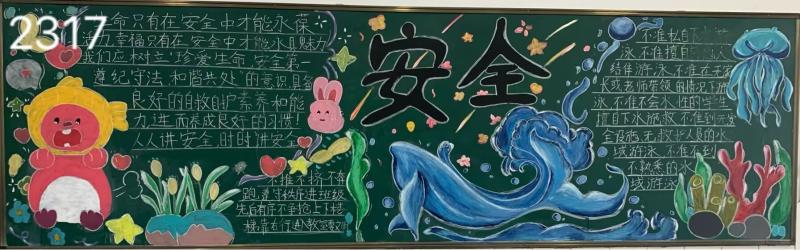 2317
命只有在安全中才能永葆
幸福只有在安全中才能永具魅力
我们应树立"珍爱生命,安全第一
遵纪守法,和谐共处"的意识,具备
良好的自救护素养和能
力,进而养成良好的习惯!
人人讲安全,时时讲安全
安全
不推不挤不在
跑,遵守秩序进班级
先后有序不争抢上下楼
梯靠右行进入教室
不准私自下
泳不准擅自
结伴游泳不准在无
长或老师带领的情况下游
泳不准不会水性的学生
自下水施救不准到无安
全设施、无救护人员的水
域游泳不准不到
不熟悉的水
域游泳